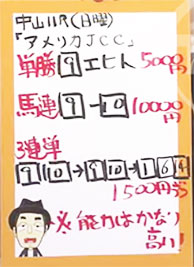 中山11R(日曜)
「アメリカJCC」
単勝 9 エヒト 5000円
馬連 9-10 10000円
3連単
9 10→9 10→1 6 4
1500円づつ
※能力はかなり
高い!